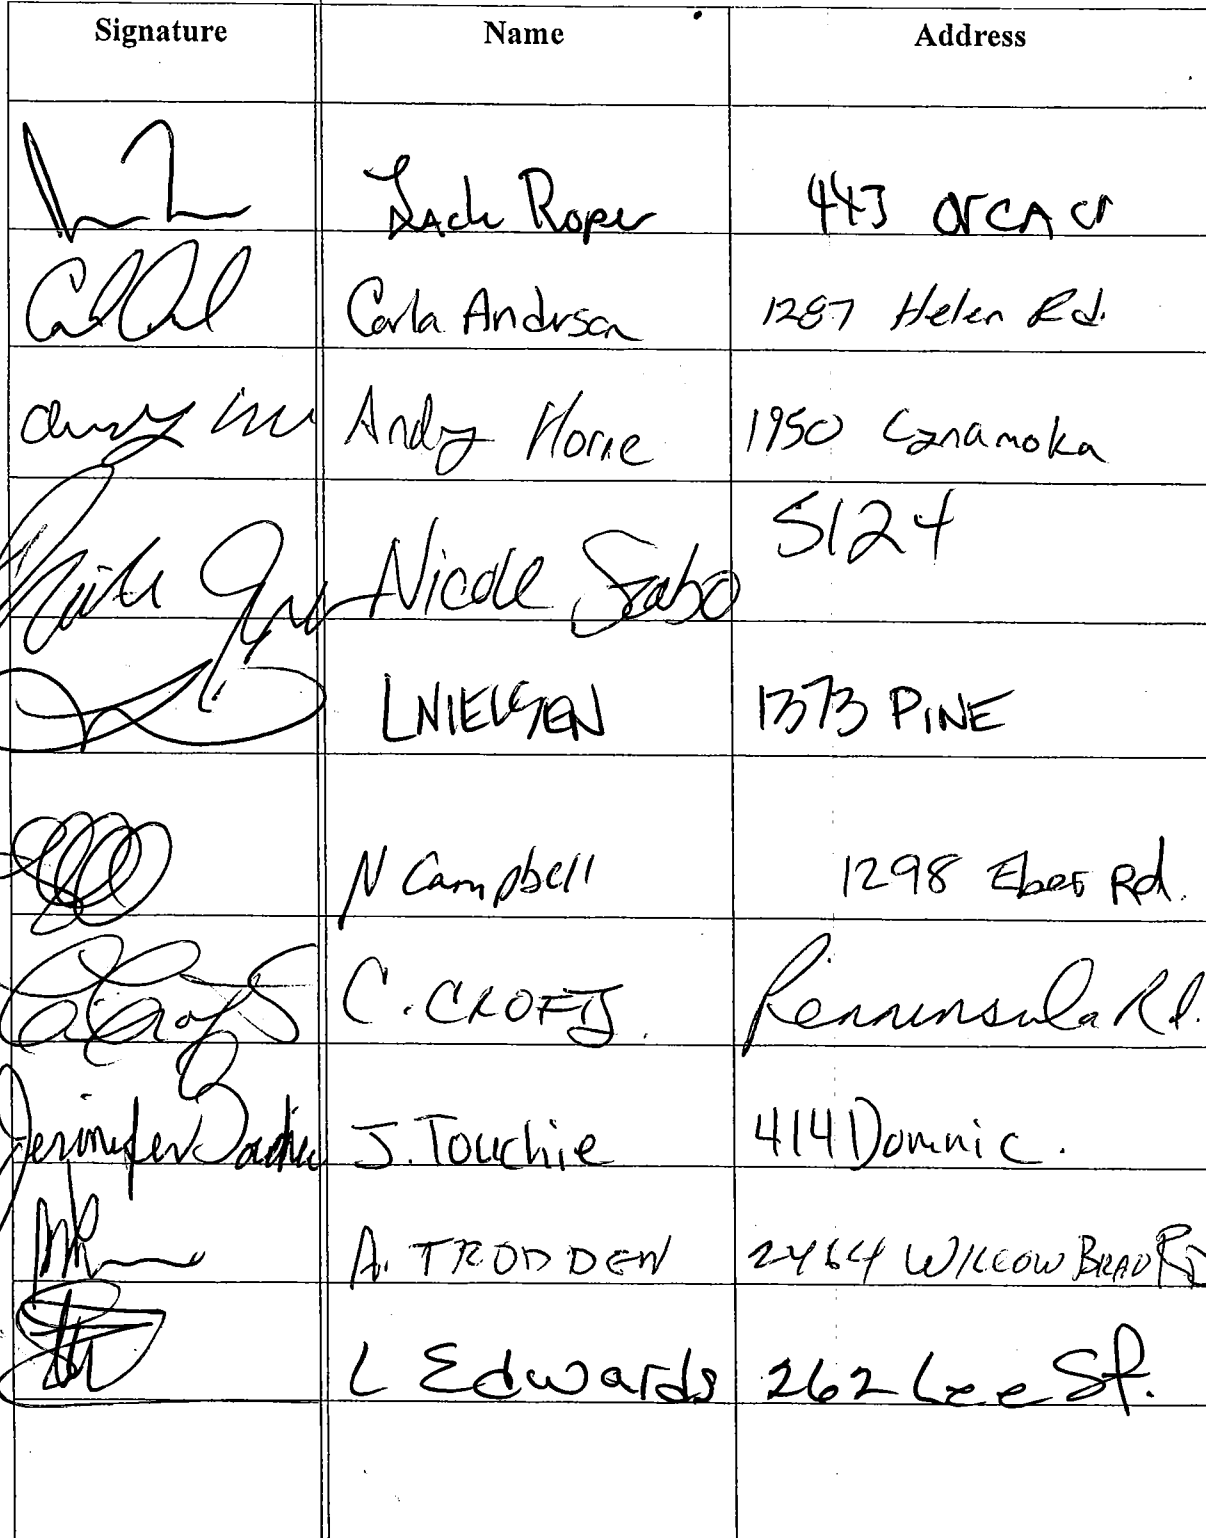 Signature Name Address
Zach Roper 443 Orca Cr
Carla Anderson 1287 Helen Rd.
Andy Horne 1950
Nicole Szabo 5124
L NIELSEN 1373 PINE
N Campbell 1298 Eber Rd.
C. CROFTS. Penninsula Rd.
Jennifer Touchie J. Touchie 414 Dominic.
A. TRODDEN 2464 WILLOW BRAU RD
L Edwards 262 Lee St.